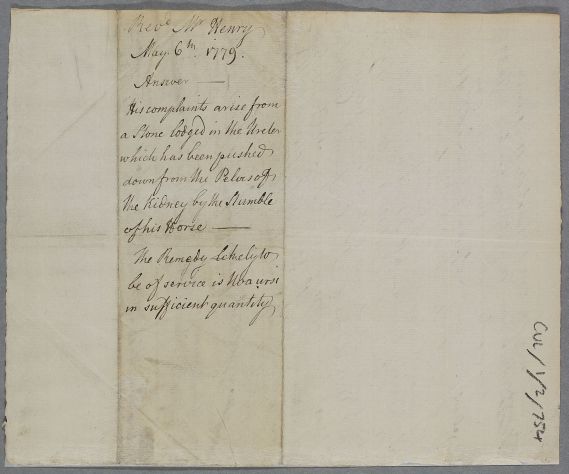 Revd. Mr Henry
May 6th. 1779.
Answer —
His complaints arise from
a Stone lodged in the Ureter
which has been pushed
down from the Pelvis of
the Kidney by the Stumble
of his Horse —
The Remedy likely to
be of service is Uva ursi
in sufficient quantity
CUL/1/2/754